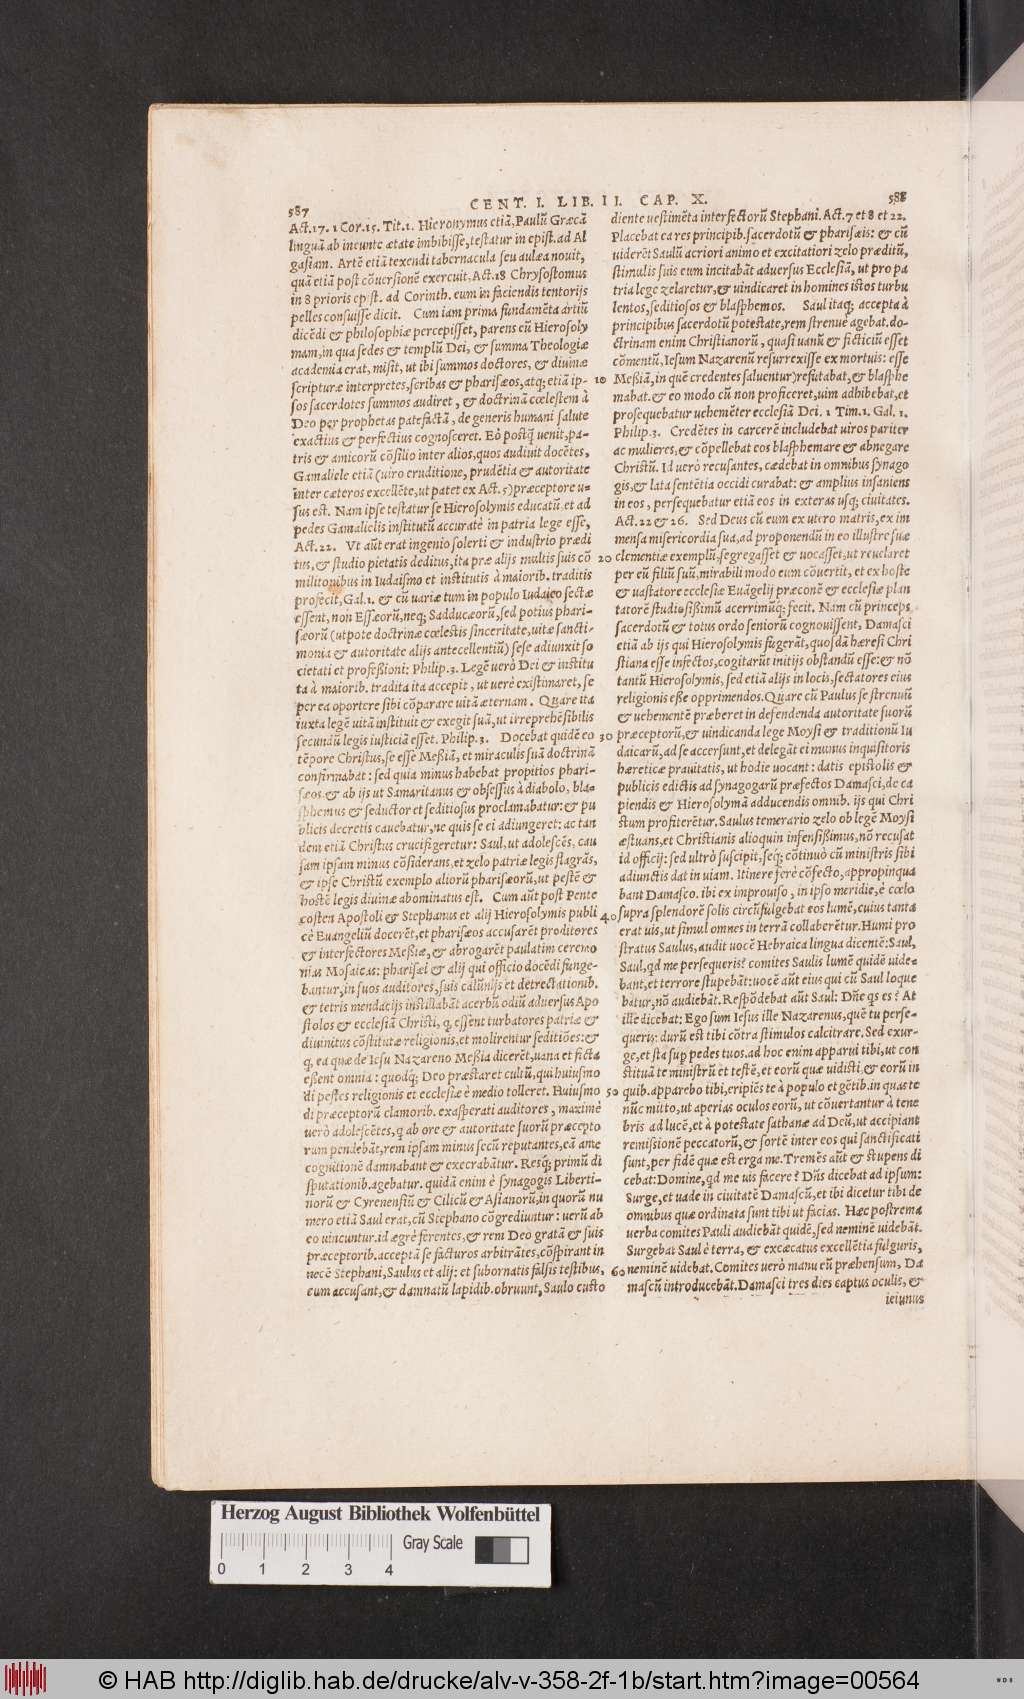 587
CENT. I. LIB. II. CAP. X.
588
Act. 17. 1 Cor. 15. Tit. 1. Hieronymus etiā, Paulū Græcā
linguā ab ineunte ætate imbibisse, testatur in epist. ad Al
gasiam. Artē etiā texendi tabernacula seu aulæa nouit,
quā etiā post cōuersionē exercuit, Act. 18 Chrysostomus
in 8 prioris epist. ad Corinth. eum in faciendis tentorijs
pelles consuisse dicit. Cum iam prima fundamēta artiū
dicēdi & philosophiæ percepisset, parens eū Hierosoly
mam, in qua sedes & templū Dei, & summa Theologiæ
academia erat, misit, ut ibi summos doctores, & diuinæ
scripturæ interpretes, scribas & pharisæos, atq; etiā ip-
sos sacerdotes summos audiret, & doctrinā cœlestem à
Deo per prophetas patefactā, de generis humani salute
exactius & perfectius cognosceret. Eò postq̃ uenit, pa-
tris & amicorū cōsilio inter alios, quos audiuit docētes,
Gamaliele etiā (uiro eruditione, prudētia & autoritate
inter cæteros excellēte, ut patet ex Act. 5) præceptore u-
sus est. Nam ipse testatur se Hierosolymis educatū, et ad
pedes Gamalielis institutū accuratè in patria lege esse,
Act. 22. Vt aūt erat ingenio solerti & industrio prædi
tus, & studio pietatis deditus, ita præ alijs multis suis cō
militonibus in Iudaismo et institutis à maiorib. traditis
profecit, Gal. 1. & cū uariæ tum in populo Iudaico sectæ
essent, non Essæorū, neq; Sadducæorū, sed potius phari-
sæorū (utpote doctrinæ cœlestis sinceritate, uitæ sancti-
monia & autoritate alijs antecellentiū) sese adiunxit so
cietati et professioni: Philip. 3. Legē uerò Dei & institu
ta à maiorib. tradita ita accepit, ut uerè existimaret, se
per ea oportere sibi cōparare uitā æternam. Quare ita
iuxta legē uitā instituit & exegit suā, ut irreprehēsibilis
secundū legis iusticiā esset. Philip. 3. Docebat quidē eo
tēpore Christus, se esse Meßiā, et miraculis suā doctrinā
confirmabat: sed quia minus habebat propitios phari-
sæos & ab ijs ut Samaritanus & obsessus à diabolo, bla-
sphemus & seductor et seditiosus proclamabatur: & pu
blicis decretis cauebatur, ne quis se ei adiungeret: ac tan
dem etiā Christus crucifigeretur: Saul, ut adolescēs, cau
sam ipsam minus cōsiderans, et zelo patriæ legis flagrās,
& ipse Christū exemplo aliorū pharisæorū, ut pestē &
hostē legis diuinæ abominatus est. Cum aūt post Pente
costen Apostoli & Stephanus et alij Hierosolymis publi
cè Euangeliū docerēt, et pharisæos accusarēt proditores
& interfectores Meßiæ, & abrogarēt paulatim ceremo
nias Mosaicas: pharisæi & alij qui officio docēdi funge-
bantur, in suos auditores, suis calūnijs et detrectationib.
& tetris mendacijs instillabāt acerbū odiū aduersus Apo
stolos & ecclesiā Christi, q̃ essent turbatores patriæ &
diuinitus cōstitutæ religionis, et molirentur seditiões: &
q̃ ea quæ de Iesu Nazareno Meßia dicerēt, uana et ficta
eßent omnia: quodq; Deo præstaret cultū, qui huiusmo
di pestes religionis et ecclesiæ è medio tolleret. Huiusmo
di præceptorū clamorib. exasperati auditores, maximè
uerò adolescētes, q̃ ab ore & autoritate suorū præcepto
rum pendebāt, rem ipsam minus secū reputantes, eā ame
cognitionē damnabant & execrabātur. Resq; primū di
sputationib. agebatur. quidā enim è synagogis Liberti-
norū & Cyrenensiū & Cilicū & Asianorū, in quorū nu
mero etiā Saul erat, cū Stephano cōgrediuntur: uerū ab
eo uincuntur. id ægrè ferentes, & rem Deo gratā & suis
præceptorib. acceptā se facturos arbitrātes, cōspirant in
necē Stephani, Saulus et alij: et subornatis falsis testibus,
eum accusant, & damnatū lapidib. obruunt, Saulo custo
10
20
30
40
50
60
diente uestimēta interfectorū Stephani. Act. 7 et 8 et 22.
Placebat ea res principib. sacerdotū & pharisæis: & cū
uiderēt Saulū acriori animo et excitatiori zelo præditū,
stimulis suis eum incitabāt aduersus Ecclesiā, ut pro pa
tria lege zelaretur, & uindicaret in homines istos turbu
lentos, seditiosos & blasphemos. Saul itaq; accepta à
principibus sacerdotū potestate, rem strenuè agebat. do-
ctrinam enim Christianorū, quasi uanū & ficticiū esset
cōmentū, Iesum Nazarenū resurrexisse ex mortuis: esse
Meßiā, in quē credentes saluentur) refutabat, & blasphe
mabat. & eo modo cū non proficeret, uim adhibebat, et
prosequebatur uehemēter ecclesiā Dei. 1 Tim. 1. Gal. 1.
Philip. 3. Credētes in carcerē includebat uiros pariter
ac mulieres, & cōpellebat eos blasphemare & abnegare
Christū. Id uerò recusantes, cædebat in omnibus synago
gis, & lata sentētia occidi curabat: & amplius insaniens
in eos, persequebatur etiā eos in exteras usq; ciuitates.
Act. 22 & 26. Sed Deus cū eum ex utero matris, ex im
mensa misericordia sua, ad proponendū in eo illustre suæ
clementiæ exemplū, segregasset & uocasset, ut reuelaret
per eū filiū suū, mirabili modo eum cōuertit, et ex hoste
& uastatore ecclesiæ Euāgelij præconē & ecclesiæ plan
tatorē studiosißimū acerrimūq; fecit. Nam cū princeps
sacerdotū & totus ordo seniorū cognouissent, Damasci
etiā ab ijs qui Hierosolymis fugerāt, quosdā hæresi Chri
stiana esse infectos, cogitarūt initijs obstandū esse: & nō
tantū Hierosolymis, sed etiā alijs in locis, sectatores eius
religionis eße opprimendos. Quare cū Paulus se strenuū
& uehementē præberet in defendenda autoritate suorū
præceptorū, & uindicanda lege Moysi & traditionū Iu
daicarū, ad se accersunt, et delegāt ei munus inquisitoris
hæreticæ prauitatis, ut hodie uocant: datis epistolis &
publicis edictis ad synagogarū præfectos Damasci, de ca
piendis & Hierosolymā adducendis omnib. ijs qui Chri
stum profiterētur. Saulus temerario zelo ob legē Moysi
æstuans, et Christianis alioquin infensißimus, nō recusat
id officij: sed ultrò suscipit, seq; cōtinuò cū ministris sibi
adiunctis dat in uiam. Itinere ferè cōfecto, appropinqua
bant Damasco. ibi ex improuiso, in ipso meridie, è cœlo
supra splendorē solis circūfulgebat eos lumē, cuius tanta
erat uis, ut simul omnes in terrā collaberētur. Humi pro
stratus Saulus, audit uocē Hebraica lingua dicentē: Saul,
Saul, qd me persequeris? comites Saulis lumē quidē uide-
bant, et terrore stupebāt: uocē aūt eius qui cū Saul loque
batur, nō audiebāt. Respōdebat aūt Saul: Dñe qs es? At
ille dicebat: Ego sum Iesus ille Nazarenus, quē tu perse-
queris: durū est tibi cōtra stimulos calcitrare. Sed exur-
ge, et sta sup pedes tuos. ad hoc enim apparui tibi, ut con
stituā te ministrū et testē, et eorū quæ uidisti, & eorū in
quib. apparebo tibi, eripiēs te à populo et gētib. in quas te
nūc mitto, ut aperias oculos eorū, ut cōuertantur à tene
bris ad lucē, et à potestate sathanæ ad Deū, ut accipiant
remissionē peccatorū, & sortē inter eos qui sanctificati
sunt, per fidē quæ est erga me. Tremēs aūt & stupens di
cebat: Domine, qd me uis facere? Dñs dicebat ad ipsum:
Surge, et uade in ciuitatē Damascū, et ibi dicetur tibi de
omnibus quæ ordinata sunt tibi ut facias. Hæc postrema
uerba comites Pauli audiebāt quidē, sed neminē uidebāt.
Surgebat Saul è terra, & excæcatus excellētia fulguris,
neminē uidebat. Comites uerò manu eū præhensum, Da
mascū introducebāt. Damasci tres dies captus oculis, &
ieiunus
Herzog August Bibliothek Wolfenbüttel
Gray Scale
0 1 2 3 4
© HAB http://diglib.hab.de/drucke/alv-v-358-2f-1b/start.htm?image=00564